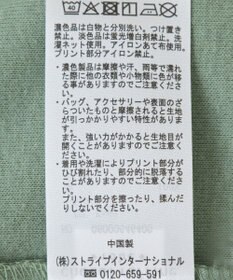 40
濃色品は白物と分別洗い。つけ置き
禁止。淡色品は蛍光増白剤禁止。洗
濯ネット使用。アイロンあて布使用。
プリント部分アイロン禁止。
・濃色製品は摩擦や汗、雨等で濡れ
た際に他の衣類や小物類に色が移
る事がありますのでご注意くださ
い。
・バッグ、アクセサリーや表面のざ
らついたものと摩擦されると生地
が引っかかりやすい特性がありま
す。
また、強い力がかかると生地目が
開くことがありますのでご注意下
さい。
・着用や洗濯によりプリント部分が
ひび割れたり、部分的に脱落する
ことがありますのでご注意くださ
い。
プリント部分を擦ったり、揉んだ
りしないでください。
中国製
(株)ストライプインターナショナル
☎ 0120-659-591